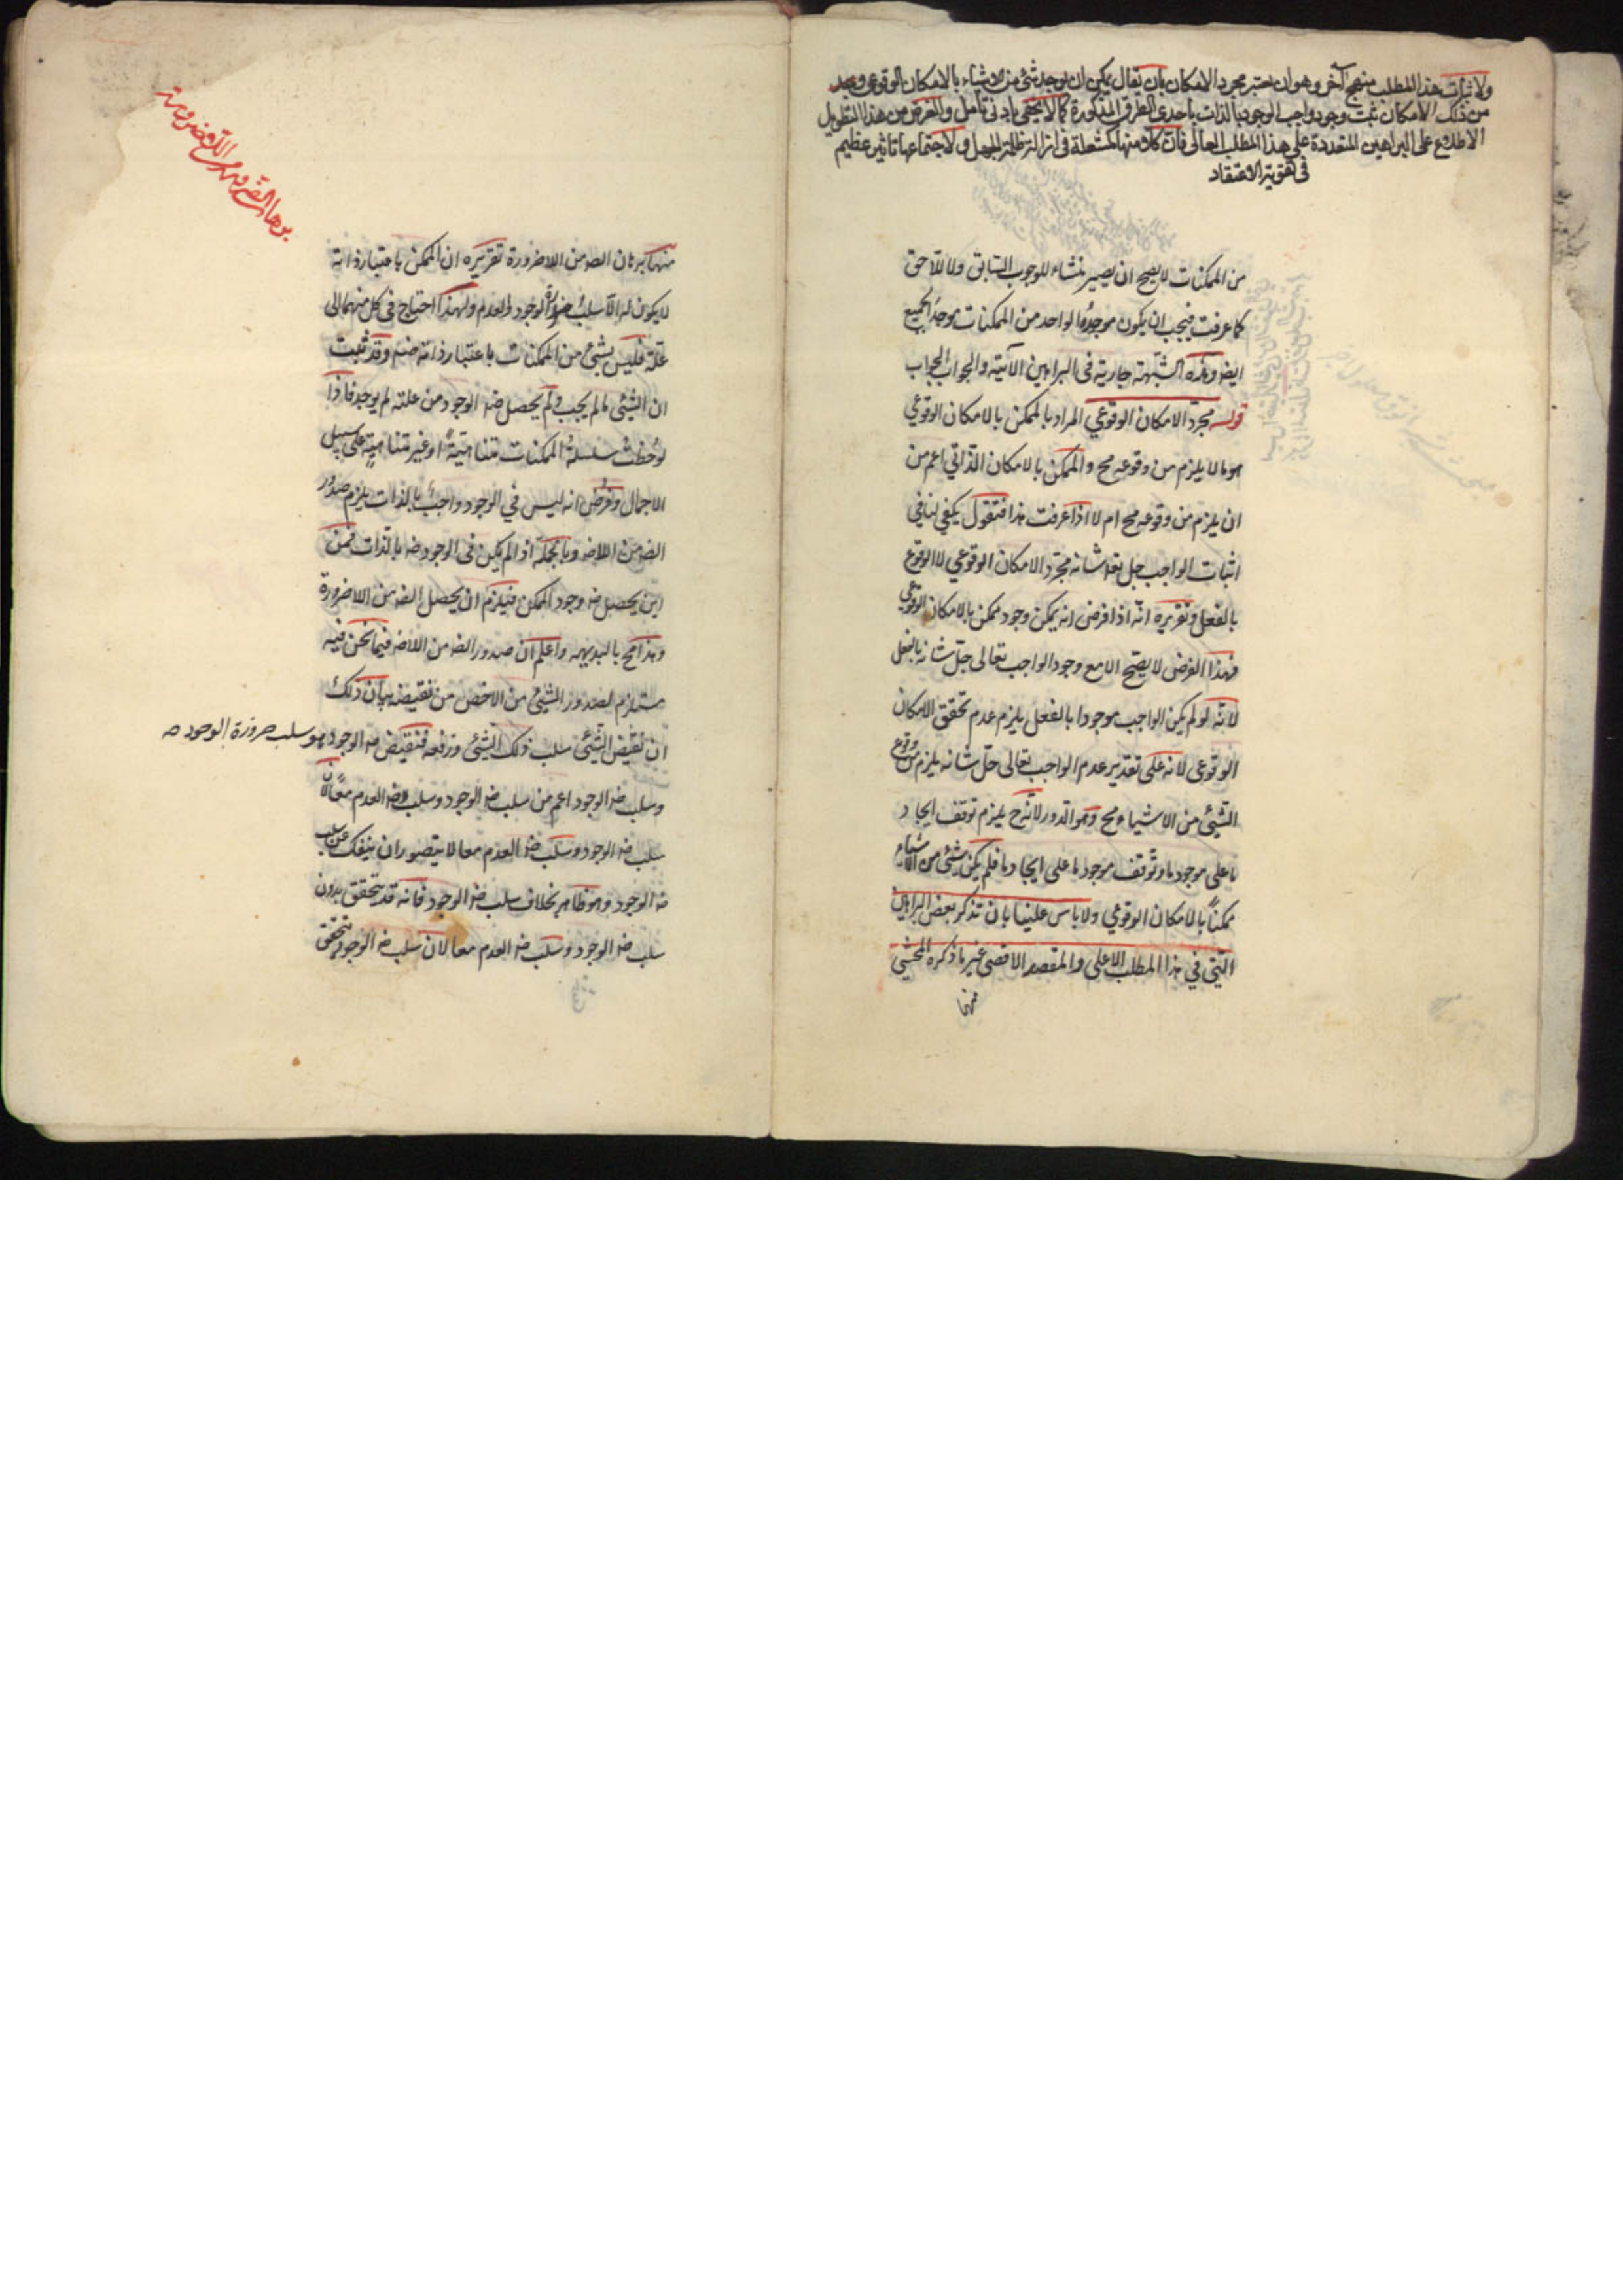 ولاثبات هذا المطلب منهج آخر وهو ان يعتبر مجرد الامكان بان يقال يمكن ان يوجد شئ من الاشياء بالامكان الوقوعي وبعد
من ذلك الامكان نثبت وجود واجب الوجود بالذات باحدى الطرق المذكورة كما لا يخفى بادنى تامل والغرض من هذا التطويل
الاطلاع على البراهين المتعددة على هذا المطلب العالى فان كلا منها كمشعلة فى ازالة ظلمة الجهل ولاجتماعها تاثير عظيم
فى تقوية الاعتقاد
من الممكنات لا يصح ان يصير منشاء للوجوب السابق ولا للاحق
كما عرفت فيجب ان يكون موجد الواحد من الممكنات موجد الجميع
ايضا وهذه الشبهة جارية فى البراهين الآتية والجواب الجواب
قوله مجرد الامكان الوقوعي المراد بالممكن بالامكان الوقوعي
هو ما لا يلزم من وقوعه مح والممكن بالامكان الذاتي اعم من
ان يلزم من وقوعه مح ام لا اذا عرفت هذا فنقول يكفي لنا في
اثبات الواجب جل شانه مجرد الامكان الوقوعي لا الوقوع
بالفعل وتقريره انه اذا فرض انه يمكن وجود ممكن بالامكان الوقوعي
فهذا الفرض لا يصح الا مع وجود الواجب تعالى جل شانه بالفعل
لانه لو لم يكن الواجب موجودا بالفعل يلزم عدم تحقق الامكان
الوقوعى لانه على تقدير عدم الواجب تعالى جل شانه يلزم من وقوع
الشئ من الاشياء مح وهو الدور لانه ح يلزم توقف ايجاد
ما على موجود ما وتوقف موجود ما على ايجاد ما فلم يكن شئ من الاشياء
ممكنا بالامكان الوقوعي ولا باس علينا بان نذكر بعض البراهين
التي في هذا المطلب الاعلى والمقصد الاقصى غير ما ذكره المحشي
منها
منها برهان الضه من اللاضرورة تقريره ان الممكن باعتبار ذاته
لا يكون له الا سلب ضرورة الوجود والعدم ولهذا احتاج فى كل منهما الى
علة فليس بشئ من الممكنات باعتبار ذاته ضه وقد ثبت
ان الشئ ما لم يجب ولم يحصل ضه الوجود من علته لم يوجد فاذا
لوحظت سلسلة الممكنات متناهية او غير متناهية على سبيل
الاجمال وفرض انه ليس في الوجود واجب بالذات يلزم صدور
الضه من اللاضه وبالجملة اذ لم يكن فى الوجود ضه بالذات فمن
اين يحصل ضه وجود الممكن فيلزم ان يحصل الضه من اللاضرورة
وهذا مح بالبديهه واعلم ان صدور الضه من اللاضه فيما نحن فيه
مستلزم لصدور الشئ من الاخص من نقيضه بيان ذلك
ان نقيض الشئ سلب ذلك الشئ ورفعه فنقيض ضه الوجود هو سلب ضرورة الوجود صه
وسلب ضه الوجود اعم من سلب ضه الوجود وسلب ضه العدم معا لان
سلب ضه الوجود وسلب ضه العدم معا لا يتصور ان ينفك عن سلب
ضه الوجود وهو ظاهر بخلاف سلب ضه الوجود فانه قد يتحقق بدون
سلب ضه الوجود وسلب ضه العدم معا لان سلب ضه الوجود يتحقق